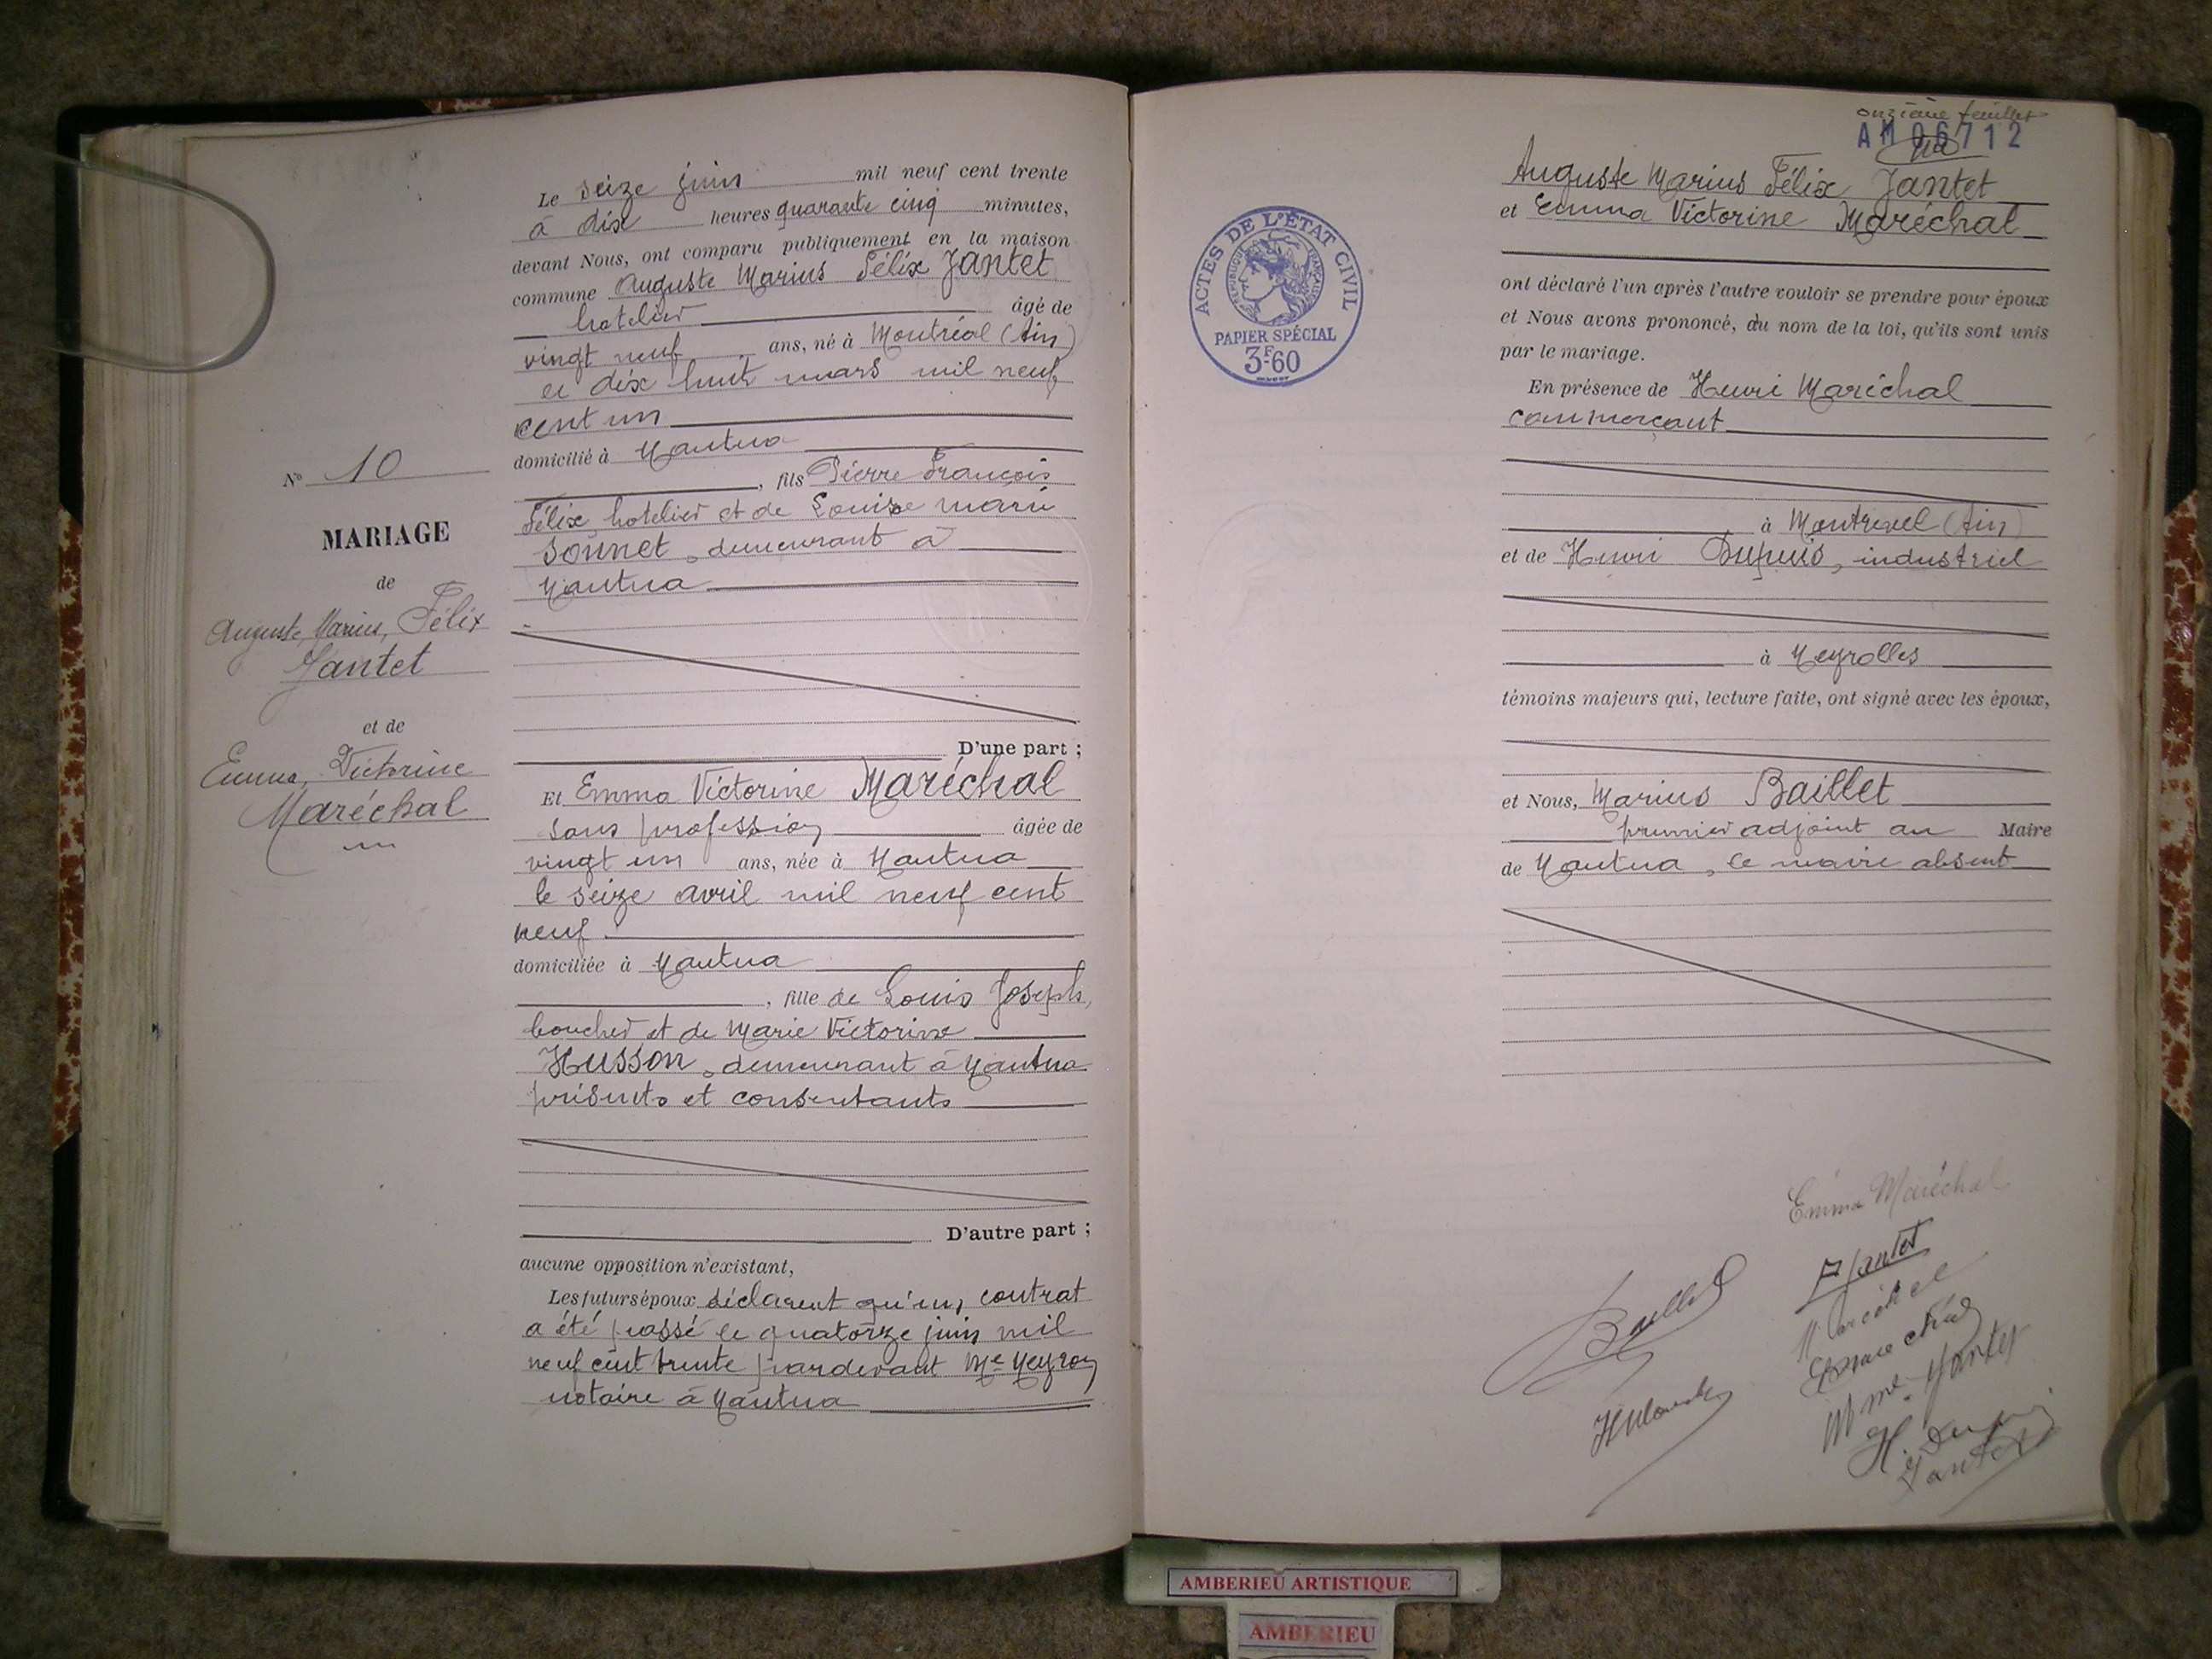 Le seize juin mil neuf cent trente
à dix heures quarante cinq minutes,
devant Nous, ont comparu publiquement en la maison
commune Auguste Marius Félix Jantet
hotelier âgé de
vingt neuf ans, né à Montréal (Ain)
le dix huit mars mil neuf
cent un
domicilié à Nantua
, fils Pierre François
Félix, hotelier et de Louise Marie
Sonnet, demeurant à
Nantua
D'une part ;
Et Emma Victorine Maréchal
sans profession âgée de
vingt un ans, née à Nantua
le seize avril mil neuf cent
neuf
domiciliée à Nantua
, fille de Louis Joseph,
boucher et de Marie Victorine
Husson, demeurant à Nantua
présents et consentants
D'autre part ;
aucune opposition n'existant,
Les futurs époux déclarent qu'un contrat
a été passé le quatorze juin mil
neuf cent trente pardevant Me Neyron
notaire à Nantua
N° 10
MARIAGE
de
Auguste, Marius, Félix
Jantet
et de
Emma, Victorine
Maréchal
onzième feuillet
AM06712
Auguste Marius Félix Jantet
et Emma Victorine Maréchal
ont déclaré l'un après l'autre vouloir se prendre pour époux
et Nous avons prononcé, au nom de la loi, qu'ils sont unis
par le mariage.
En présence de Henri Maréchal
commerçant
à Montrevel (Ain)
et de Henri Dupuis, industriel
à Neyrolles
témoins majeurs qui, lecture faite, ont signé avec les époux,
et Nous, Marius Baillet
premier adjoint au Maire
de Nantua, le maire absent
ACTES DE L'ÉTAT CIVIL
RÉPUBLIQUE FRANÇAISE
PAPIER SPÉCIAL
3F-60
Emma Maréchal
Jantet
Maréchal
Baillet
Mme Jantet
H. Dupuis
Jantet
AMBERIEU ARTISTIQUE
AMBERIEU